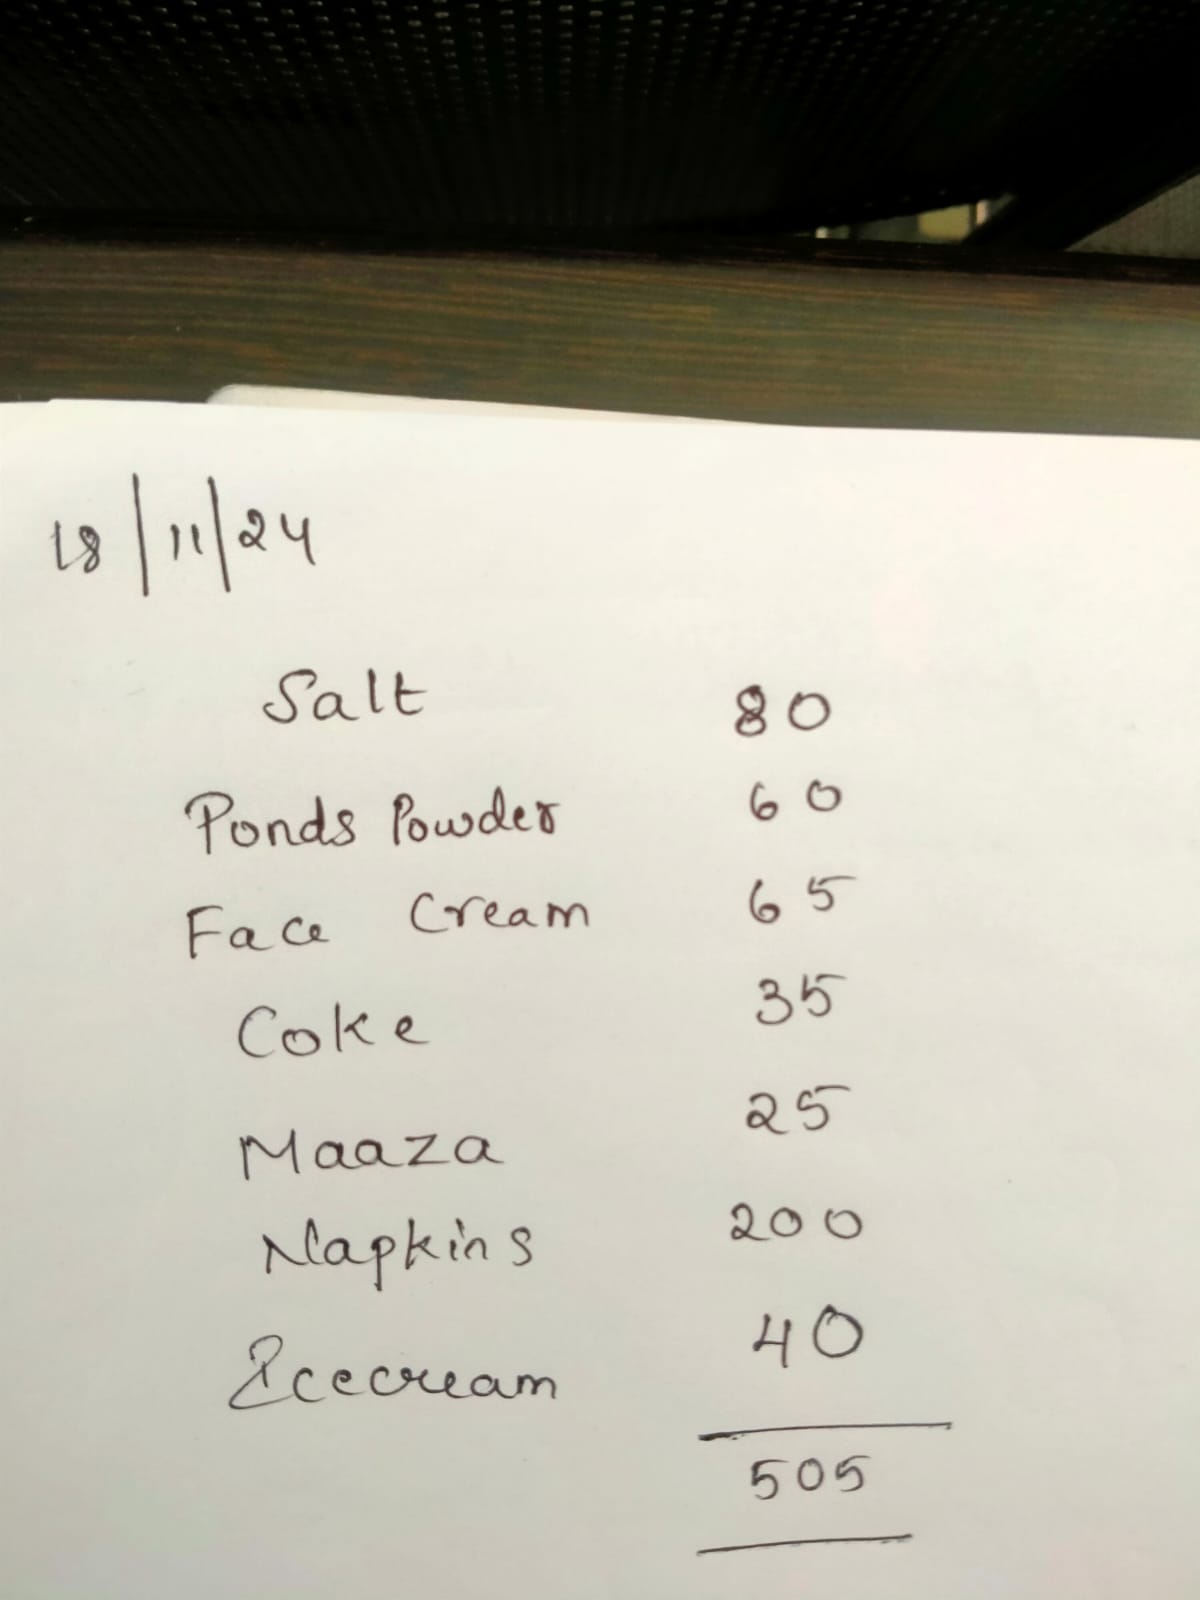 18/11/24
Salt 80
Ponds Powder 60
Face Cream 65
Coke 35
Maaza 25
Napkins 200
Icecream 40
505